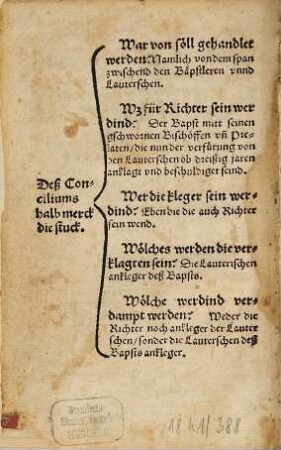 War von söll gehandlet
werden: Namlich von dem span
zwischend den Bäpstleren vnnd
Lauterschen.
Wz für Richter sein wer
dind: Der Bapst mitt seinen
gschwornen Bischöffen vñ Pre-
laten/die nun der verfürung von
den Lauterschen ob dreißig jaren
anklagt vnd beschuldiget seind.
Deß Con-
ciliums
halb merck
die stuck.
Wer die kleger sein wer-
dind? Eben die die auch Richter
sein wend.
Wölches werden die ver-
klagten sein? Die Lauterischen
ankleger deß Bapsts.
Wölche werdind ver-
dampt werden? Weder die
Richter noch ankleger der Lauter
schen/sonder die Lauterschen deß
Bapsts ankleger.
18 H1/388